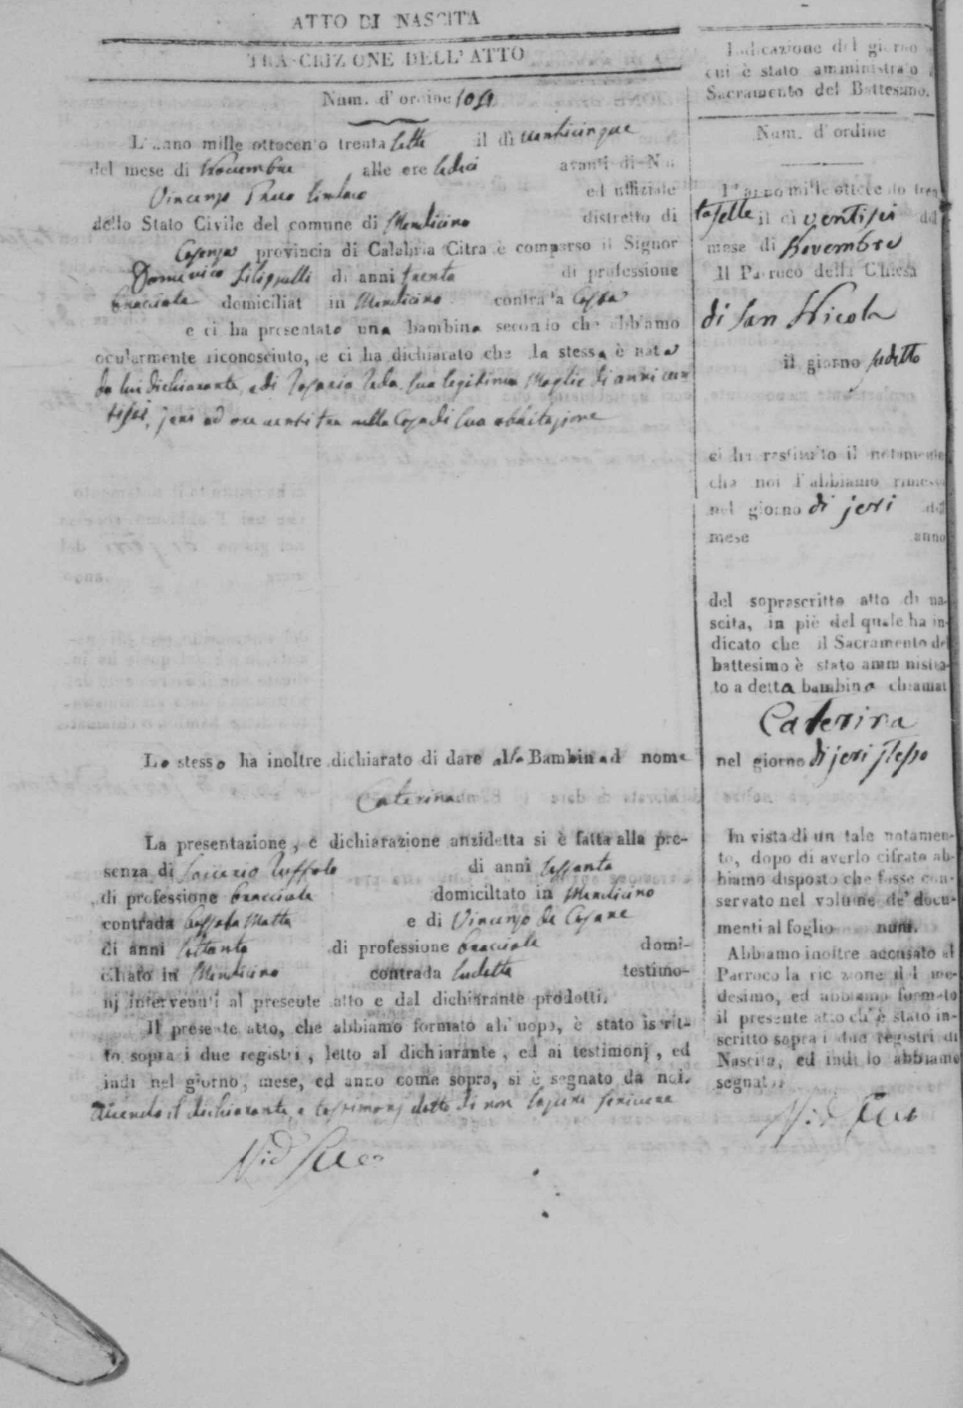 ATTO DI NASCITA
TRASCRIZIONE DELL'ATTO
Num. d'ordine
L'anno mille ottocento trenta sette il dì venticinque
del mese di Novembre alle ore sedici avanti di Noi
Vincenzo Sindaco ed uffiziale
dello Stato Civile del comune di Mendicino distretto di
Cosenza provincia di Calabria Citra è comparso il Signor
Domenico Filippelli di anni trenta di professione
bracciale domiciliat in Mendicino contrada
e ci ha presentato una bambina secondo che abbiamo
ocularmente riconosciuto, e ci ha dichiarato che la stessa è nata
da lui dichiarante, e di Rosaria sua legittima Moglie di anni ven
tisei, jeri ad ore ventitre nella Casa di sua abbitazione
Lo stesso ha inoltre dichiarato di dare alla Bambina il nome
Caterina
La presentazione, e dichiarazione anzidetta si è fatta alla pre-
senza di Ruffolo di anni sessanta
di professione bracciale domiciliato in Mendicino
contrada e di Vincenzo
di anni settanta di professione bracciale domi-
ciliato in Mendicino contrada sudetta testimo-
nj intervenuti al presente atto e dal dichiarante prodotti.
Il presente atto, che abbiamo formato all'uopo, è stato iscrit-
to sopra i due registri, letto al dichiarante, ed ai testimonj, ed
indi nel giorno, mese, ed anno come sopra, si è segnato da noi.
Avendo il dichiarante, e testimonj detto di non sapere scrivere
Indicazione del giorno in
cui è stato amministrato il
Sacramento del Battesimo.
Num. d'ordine
L'anno mille ottocento tren
tasette il dì ventisei del
mese di Novembre
Il Parroco della Chiesa
di San Nicola
il giorno sudetto
ci ha restituito il notamento
che noi l'abbiamo rimesso
nel giorno di jeri del
mese anno
del soprascritto atto di na-
scita, in piè del quale ha in-
dicato che il Sacramento del
battesimo è stato amministra-
to a detta bambina chiamat
Caterina
nel giorno di jeri stesso
In vista di un tale notamen-
to, dopo di averlo cifrato ab-
biamo disposto che fosse con-
servato nel volume de' docu-
menti al foglio num.
Abbiamo inoltre accusato al
Parroco la ricezione del me-
desimo, ed abbiamo formato
il presente atto ch'è stato in-
scritto sopra i due registri di
Nascita, ed indi lo abbiamo
segnato